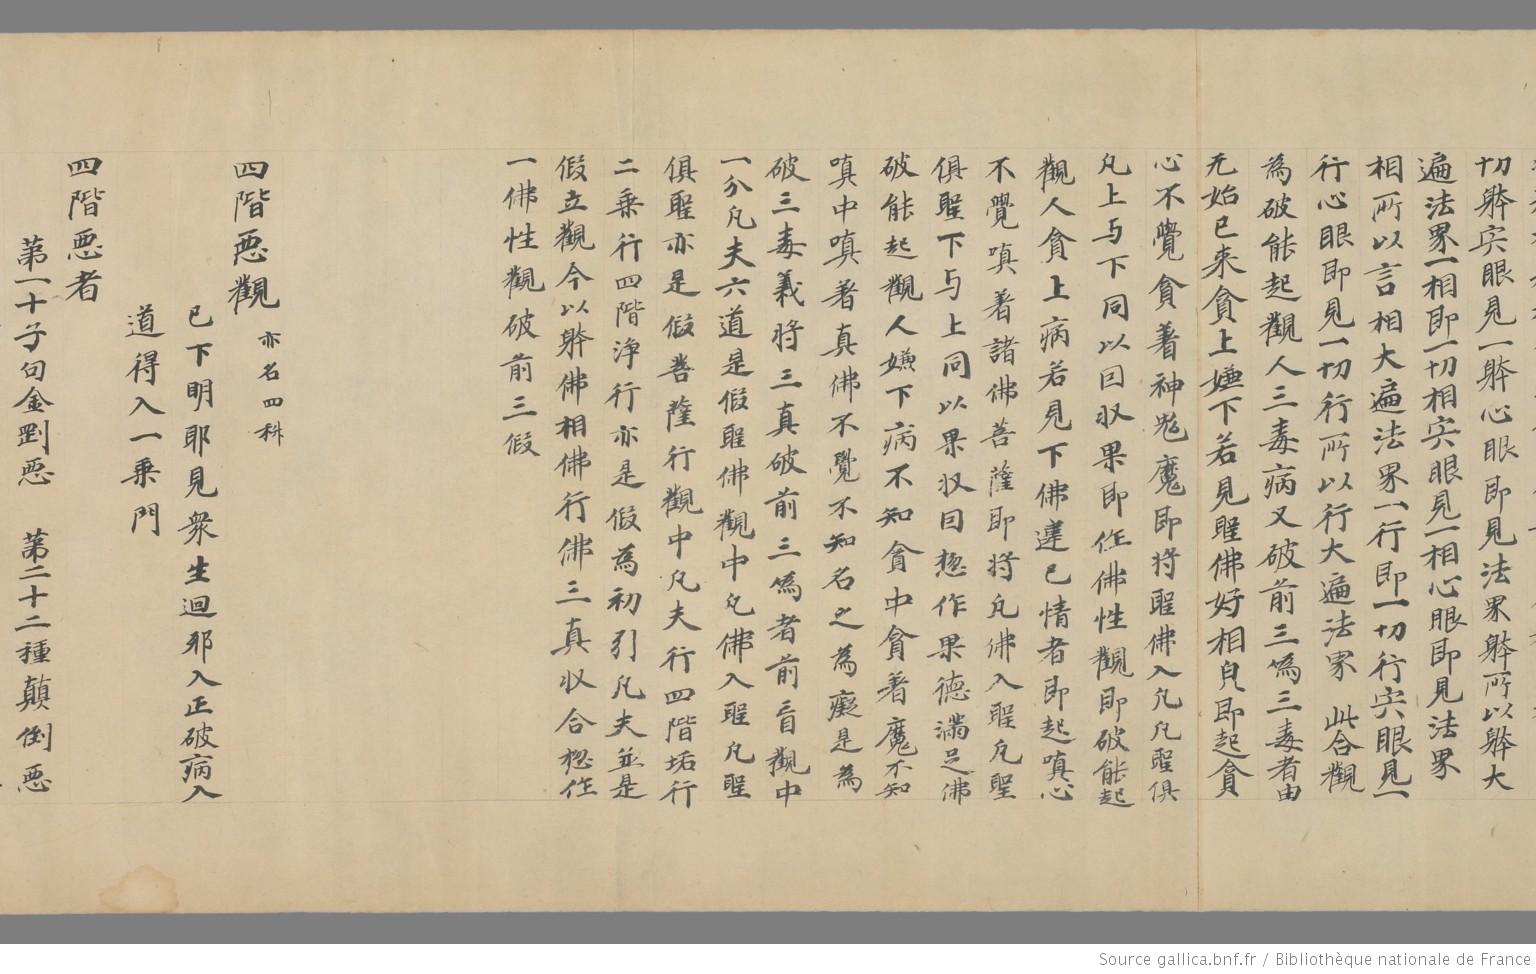 切躰宍眼見一躰心眼即見法界躰所以躰大
遍法界一相即一切相宍眼見一相心眼即見法界
相所以言相大遍法界一行即一切行宍眼見一
行心眼即見一切行所以行大遍法界 此合觀
為破能起觀人三毒病又破前三僞三毒者由
无始已来貪上嫌下若見聖佛好相皃即起貪
心不覺貪著神鬼魔即将聖佛入凡凡聖俱
凡上与下同以因収果即作佛性觀即破能起
觀人貪上病若見下佛違己情者即起嗔心
不覺嗔著諸佛菩薩即将凡佛入聖凡聖
俱聖下与上同以果収因惣作果德滿足佛
破能起觀人嫌下病不知貪中貪著魔不知
嗔中嗔著真佛不覺不知名之為癡是為
破三毒義将三真破前三僞者前盲觀中
一分凡夫六道是假聖佛觀中凡佛入聖凡聖
俱聖亦是假菩薩行觀中凡夫行四階垢行
二乗行四階淨行亦是假為初引凡夫並是
假立觀今以躰佛相佛行佛三真収合惣作
一佛性觀破前三假
四階惡觀 亦名四科
已下明耶見衆生迴邪入正破病入
道得入一乗門
四階惡者
第一十子句金剛惡 第二十二種顛倒惡